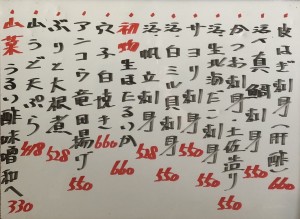 皮はぎ刺身(肝酢)
活〆真鯛刺身
かつお刺身・土佐造り 550
生北海だこ刺身 550
サヨリ刺身 550
活白ミル貝刺身 550
活帆立刺身 528
初物生ほたるいか 660
穴子白焼き 660
アンコウ竜田揚げ 550
ぶり大根煮 528
山うど天ぷら 418
山菜うるい酢味噌和へ 330